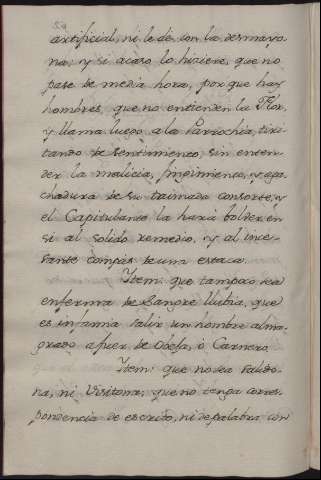 artificial, ni le dè con la desmayo-
na, y si acaso lo hiziere, que no
pase de media hora, porque hay
hombres, que no entienden la Flor,
y llama luego a la Parrochia, tiri-
tando de sentimiento, sin enten-
der la malicia, fingimiento, y aga-
chadura de su taimada consorte, y
el Capitulante la harà bolver en
sì al solido remedio, y al ince-
sante compàs de una estaca.
Ytem: que tampoco sea
enferma de Sangre llubia, que
es infamia salir un hombre alma-
grado a fuer de Obeja, ò Carnero
Ytem: que no sea saldo-
na, ni Visitona, que no tenga corres-
pondencia de escrito, ni de palabra con